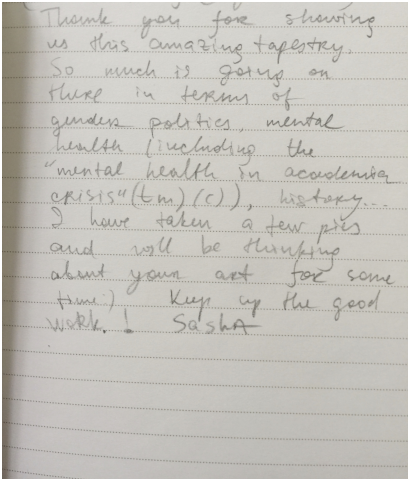 Thank you for showing
us this amazing tapestry.
So much is going on
there in terms of
gender politics, mental
health (including the
"mental health in academia
crisis" (tm)(c)), history...
I have taken a few pics
and will be thinking
about your art for some
time:) Keep up the good
work.! SashA